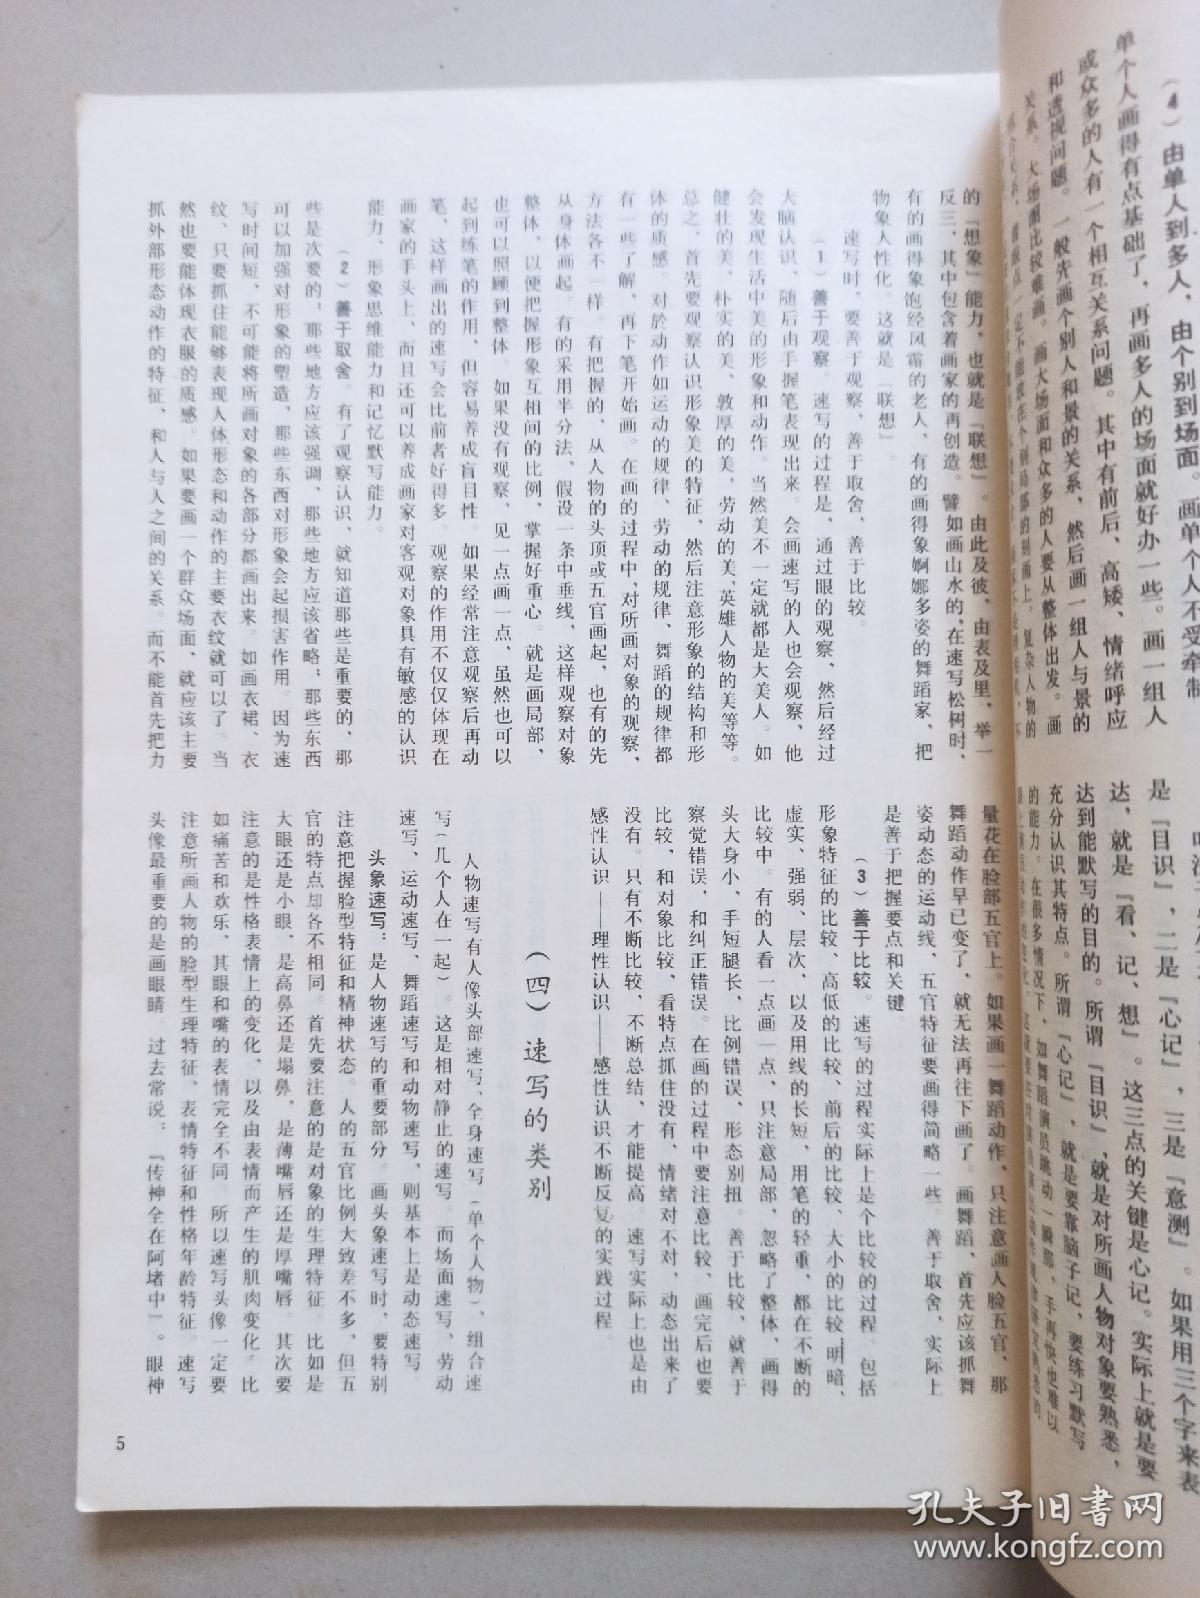 的『想象』能力，也就是『联想』。由此及彼，由表及里，举一
反三，其中包含着画家的再创造。譬如画山水的，在速写松树时，
有的画得象饱经风霜的老人，有的画得象婀娜多姿的舞蹈家，把
物象人性化。这就是『联想』。
速写时，要善于观察，善于取舍，善于比较。
（1）善于观察。速写的过程是，通过眼的观察，然后经过
大脑认识，随后由手握笔表现出来。会画速写的人也会观察，他
会发现生活中美的形象和动作。当然美不一定就都是大美人。如
健壮的美，朴实的美，敦厚的美，劳动的美，英雄人物的美等等。
总之，首先要观察认识形象美的特征，然后注意形象的结构和形
体的质感。对於动作如运动的规律、劳动的规律、舞蹈的规律都
有一些了解，再下笔开始画。在画的过程中，对所画对象的观察，
方法各不一样。有把握的，从人物的头顶或五官画起，也有的先
从身体画起。有的采用半分法，假设一条中垂线，这样观察对象
整体，以便把握形象互相间的比例，掌握好重心。就是画局部，
也可以照顾到整体。如果没有观察，见一点画一点，虽然也可以
起到练笔的作用，但容易养成盲目性。如果经常注意观察后再动
笔，这样画出的速写会比前者好得多。观察的作用不仅仅体现在
画家的手头上，而且还可以养成画家对客观对象具有敏感的认识
能力、形象思维能力和记忆默写能力。
（2）善于取舍。有了观察认识，就知道那些是重要的，那
些是次要的，那些地方应该强调，那些地方应该省略；那些东西
可以加强对形象的塑造，那些东西对形象会起损害作用。因为速
写时间短，不可能将所画对象的各部分都画出来。如画衣裙、衣
纹，只要抓住能够表现人体形态和动作的主要衣纹就可以了。当
然也要能体现衣服的质感。如果要画一个群众场面，就应该主要
抓外部形态动作的特征，和人与人之间的关系。而不能首先把力
量花在脸部五官上。如果画一舞蹈动作，只注意画人脸五官，那
舞蹈动作早已变了，就无法再往下画了。画舞蹈，首先应该抓舞
姿动态的运动线，五官特征要画得简略一些。善于取舍，实际上
是善于把握要点和关键。
（3）善于比较。速写的过程实际上是个比较的过程。包括
形象特征的比较、高低的比较、前后的比较、大小的比较、明暗、
虚实、强弱、层次，以及用线的长短，用笔的轻重，都在不断的
比较中。有的人看一点画一点，只注意局部，忽略了整体，画得
头大身小，手短腿长，比例错误，形态别扭。善于比较，就善于
察觉错误，和纠正错误。在画的过程中要注意比较，画完后也要
比较，和对象比较，看特点抓住没有，情绪对不对，动态出来了
没有。只有不断比较，不断总结，才能提高。速写实际上也是由
感性认识——理性认识——感性认识不断反复的实践过程。
（四）速写的类别
人物速写有人像头部速写、全身速写（单个人物）、组合速
写（几个人在一起）。这是相对静止的速写。而场面速写，劳动
速写、运动速写、舞蹈速写和动物速写，则基本上是动态速写。
头象速写：是人物速写的重要部分。画头象速写时，要特别
注意把握脸型特征和精神状态。人的五官比例大致差不多，但五
官的特点却各不相同。首先要注意的是对象的生理特征。比如是
大眼还是小眼，是高鼻还是塌鼻，是薄嘴唇还是厚嘴唇。其次要
注意的是性格表情上的变化，以及由表情而产生的肌肉变化。比
如痛苦和欢乐，其眼和嘴的表情完全不同。所以速写头像一定要
注意所画人物的脸型生理特征、表情特征和性格年龄特征。速写
头像最重要的是画眼睛。过去常说：『传神全在阿堵中』。眼神
5
（4）由单人到多人，由个别到场面。画单个人不受牵制，
单个人画得有点基础了，再画多人的场面就好办一些。画一组人
或众多的人有一个相互关系问题。其中有前后、高矮、情绪呼应
和透视问题。一般先画个别人和景的关系，然后画一组人与景的
关系。大场面比较难画。画大场面和众多的人要从整体出发。画
是『目识』，二是『心记』，三是『意测』。如果用三个字来表
达，就是『看、记、想』。这三点的关键是心记。实际上就是要
达到能默写的目的。所谓『目识』，就是对所画人物对象要熟悉，
充分认识其特点。所谓『心记』，就是要靠脑子记，要练习默写
的能力。在很多情况下，如舞蹈演员跳动一瞬那，手再快也难以
孔夫子旧书网
www.kongfz.com